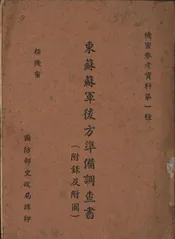 機密參考資料第一種
東蘇蘇軍後方準備調查書
(附錄及附圖)
國防部史政局譯印